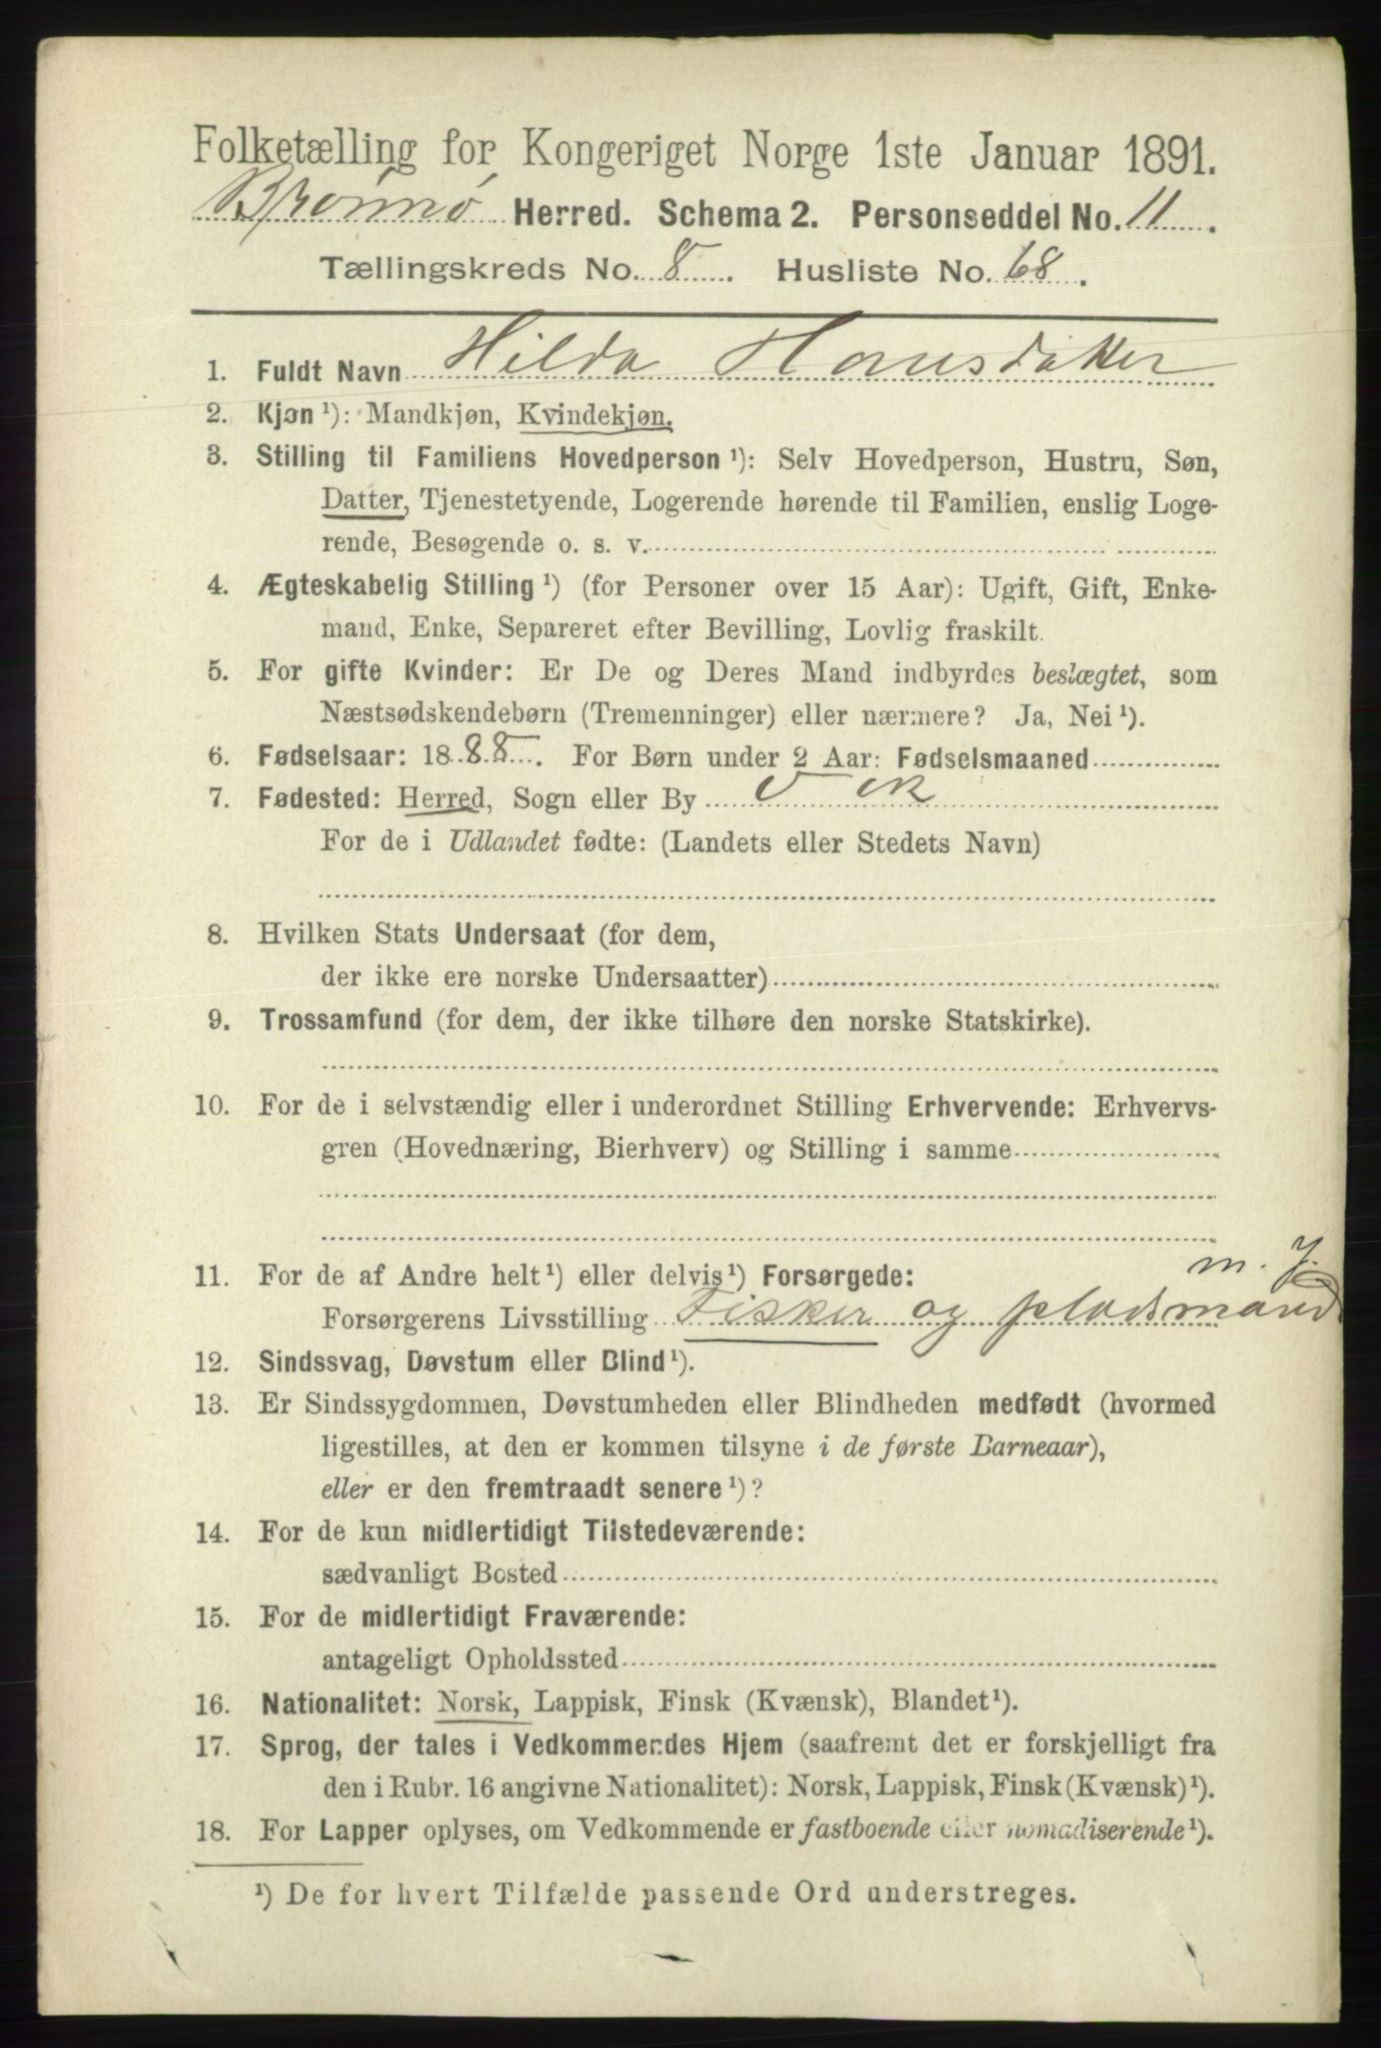 Folketælling for Kongeriget Norge 1ste Januar 1891.
Brønnø Herred. Schema 2. Personseddel No. 11.
Tællingskreds No. 8. Husliste No. 68.
1. Fuldt Navn Hilda Hansdatter
2. Kjøn ¹): Mandkjøn, Kvindekjøn.
3. Stilling til Familiens Hovedperson ¹): Selv Hovedperson, Hustru, Søn,
Datter, Tjenestetyende, Logerende hørende til Familien, enslig Loge-
rende, Besøgende o. s. v.
4. Ægteskabelig Stilling ¹) (for Personer over 15 Aar): Ugift, Gift, Enke-
mand, Enke, Separeret efter Bevilling, Lovlig fraskilt.
5. For gifte Kvinder: Er De og Deres Mand indbyrdes beslægtet, som
Næstsødskendebørn (Tremenninger) eller nærmere? Ja, Nei ¹).
6. Fødselsaar: 1888. For Børn under 2 Aar: Fødselsmaaned
7. Fødested: Herred, Sogn eller By Vik
For de i Udlandet fødte: (Landets eller Stedets Navn)
8. Hvilken Stats Undersaat (for dem,
der ikke ere norske Undersaatter)
9. Trossamfund (for dem, der ikke tilhøre den norske Statskirke).
10. For de i selvstændig eller i underordnet Stilling Erhvervende: Erhvervs-
gren (Hovednæring, Bierhverv) og Stilling i samme
m. J.
11. For de af Andre helt ¹) eller delvis ¹) Forsørgede:
Forsørgerens Livsstilling Fisker og pladsmand
12. Sindssvag, Døvstum eller Blind ¹).
13. Er Sindssygdommen, Døvstumheden eller Blindheden medfødt (hvormed
ligestilles, at den er kommen tilsyne i de første Barneaar),
eller er den fremtraadt senere ¹)?
14. For de kun midlertidigt Tilstedeværende:
sædvanligt Bosted
15. For de midlertidigt Fraværende:
antageligt Opholdssted
16. Nationalitet: Norsk, Lappisk, Finsk (Kvænsk), Blandet ¹).
17. Sprog, der tales i Vedkommendes Hjem (saafremt det er forskjelligt fra
den i Rubr. 16 angivne Nationalitet): Norsk, Lappisk, Finsk (Kvænsk) ¹).
18. For Lapper oplyses, om Vedkommende er fastboende eller nomadiserende ¹).
¹) De for hvert Tilfælde passende Ord understreges.